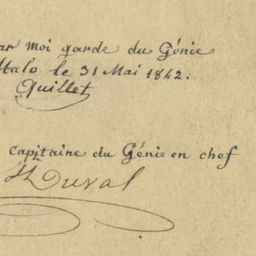 ar moi garde du Génie
Malo le 31 Mai 1842.
Quillet
capitaine du Génie en chef
Duval